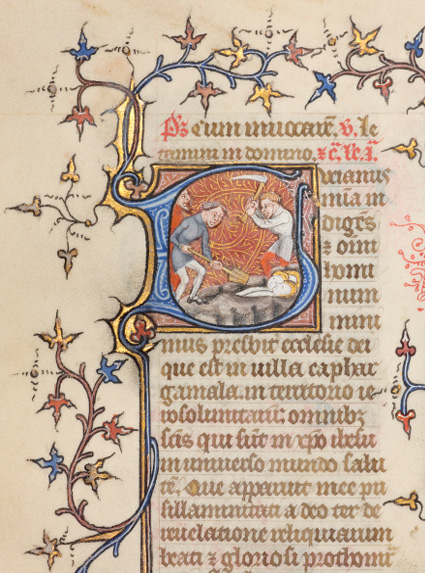 Ps Cum invocarem. v. Le
tamini in domino. xc. le. I.
ucianus
mia in
digens
z omi
homi
num
mini
mus presbit ecclesie dei
que est in villa caphar
gamala in territorio ie
rosolimitano: omnibz
scis qui sut in xpo ihesu
in universo mundo salu
te. Que apparuit mee pu
sillanimitati a deo ter de
revelatione reliquiarum
beati z gloriosi prothomi